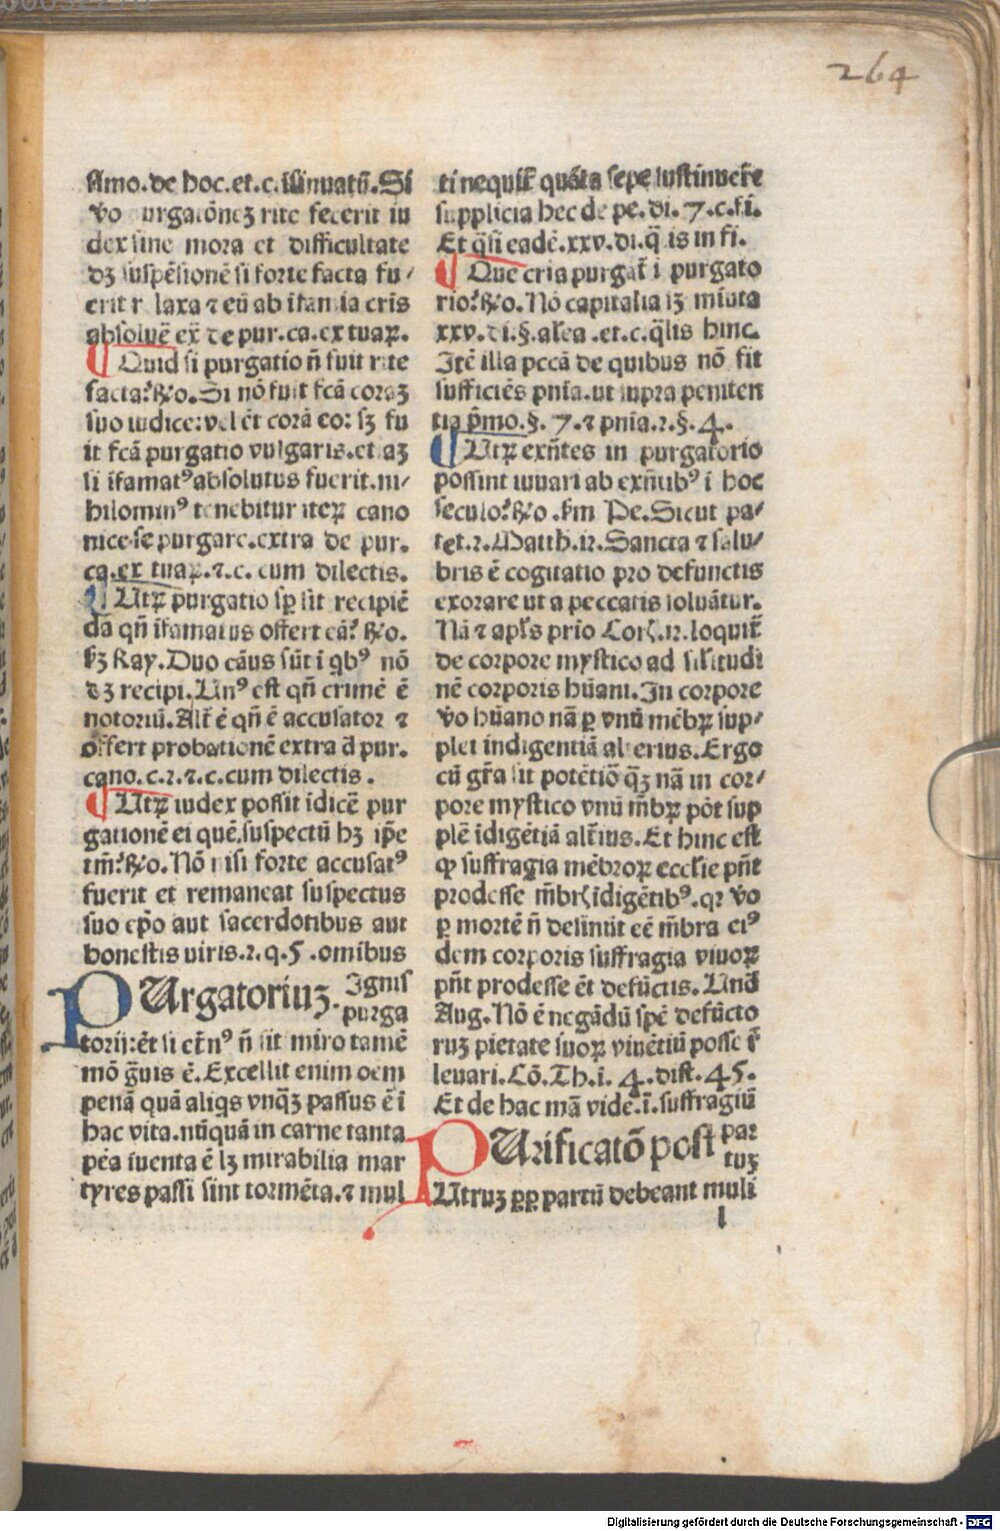 264
simo. de hoc. et. c. insinuatū. Si
vo purgatōneꝫ rite fecerit iu
dex sine mora et difficultate
dꝫ suspēsionē si forte facta fu⸗
erit relaxa ⁊ eū ab ifamia cris
absoluē ex̄ de pur. ca. ex tuaꝝ.
¶ Quid si purgatio n̄ fuit rite
facta? ℟o. Si nō fuit fcā coraꝫ
suo iudice: vel ēt corā eo: sꝫ fu
it fcā purgatio vulgaris. et aꝫ
si ifamatꝰ absolutus fuerit. ni⸗
hilominꝰ tenebitur iteꝝ cano
nice se purgare. extra de pur.
ca. ex tuaꝝ. ⁊. c. cum dilectis.
¶ Utꝝ purgatio sꝑ sit recipiē
da qn̄ ifamatus offert eā? ℟o.
ẜꝫ Ray. Duo cāus sūt i qbꝰ nō
dꝫ recipi. Unꝰ est qn̄ crimē ē
notoriū. Alr̄ ē qn̄ ē accusator ⁊
offert probationē extra d̄ pur.
cano. c. 2. ⁊. c. cum dilectis.
¶ Utꝝ iudex possit īdicē pur
gationē ei quē suspectū hꝫ ip̄e
tm̄? ℟o. Nō nisi forte accusatꝰ
fuerit et remaneat suspectus
suo ep̄o aut sacerdotibus aut
honestis viris. 2. q. 5. omibus
PUrgatoriuꝫ. Ignis
purga
torij: ēt si et̄nꝰ n̄ sit miro tamē
mō ḡuis ē. Excellit enim oem
penā quā aliqs vnqꝫ̄ passus ē i
hac vita. nūquā in carne tanta
pēa iuenta ē lꝫ mirabilia mar
tyres passi sint tormēta. ⁊ mul
ti nequit̄ quāta sepe sustinuer̄e
supplicia hec de pe. di. 7. c. fi.
Et q̄si eadē. xxv. di. q̄ is in fi.
¶ Que cria purgat̄ i purgato
rio? ℟o. Nō capitalia sꝫ miuta
xxv. di. §. alea. et. c. q̄lis hinc.
Itē illa pccā de quibus nō fit
sufficiēs pnīa. ut supra peniten
tia p̄mo. §. 7. ⁊ pnīa. 2. §. 4.
¶ Utꝝ exn̄tes in purgatorio
possint iuuari ab exn̄tibꝰ i hoc
seculo? ℟o. ẜm Pe. Sicut pa⸗
tet. 2. Match. 12. Sancta ⁊ salu⸗
bris ē cogitatio pro defunctis
exorare ut a peccatis soluātur.
Nā ⁊ apl̄s prio Corꝭ. 12. loquit̄
de corpore mystico ad silitudi
nē corporis hūani. In corpore
vo hūano nā ꝑ vnū mēbꝝ sup⸗
plet indigentiā alterius. Ergo
cū gr̄a sit potētiō qꝫ̄ nā in cor⸗
pore mystico vnū m̄bꝝ pōt sup
plē īdigētiā alt̄ius. Et hinc est
ꝙ suffragia mēbroꝝ ecclie pn̄t
prodesse m̄brꝭ īdigētibꝰ. qꝛ vo
ꝑ mortē n̄ desinūt eē m̄bra eiꝰ
dem corporis suffragia viuoꝝ
pn̄t prodesse ēt defūctis. Und̄
Aug. Nō ē negādū spē defūcto
ruꝫ pietate suoꝝ viuētiū posse r̄
leuari. Cō. Th. i. 4. dist. 45.
Et de hac mā vide. ī. suffragiū
PUrificatō post par
tuꝫ
Utruꝫ ꝑꝑ partū debeant muli
l
Digitalisierung gefördert durch die Deutsche Forschungsgemeinschaft - DFG